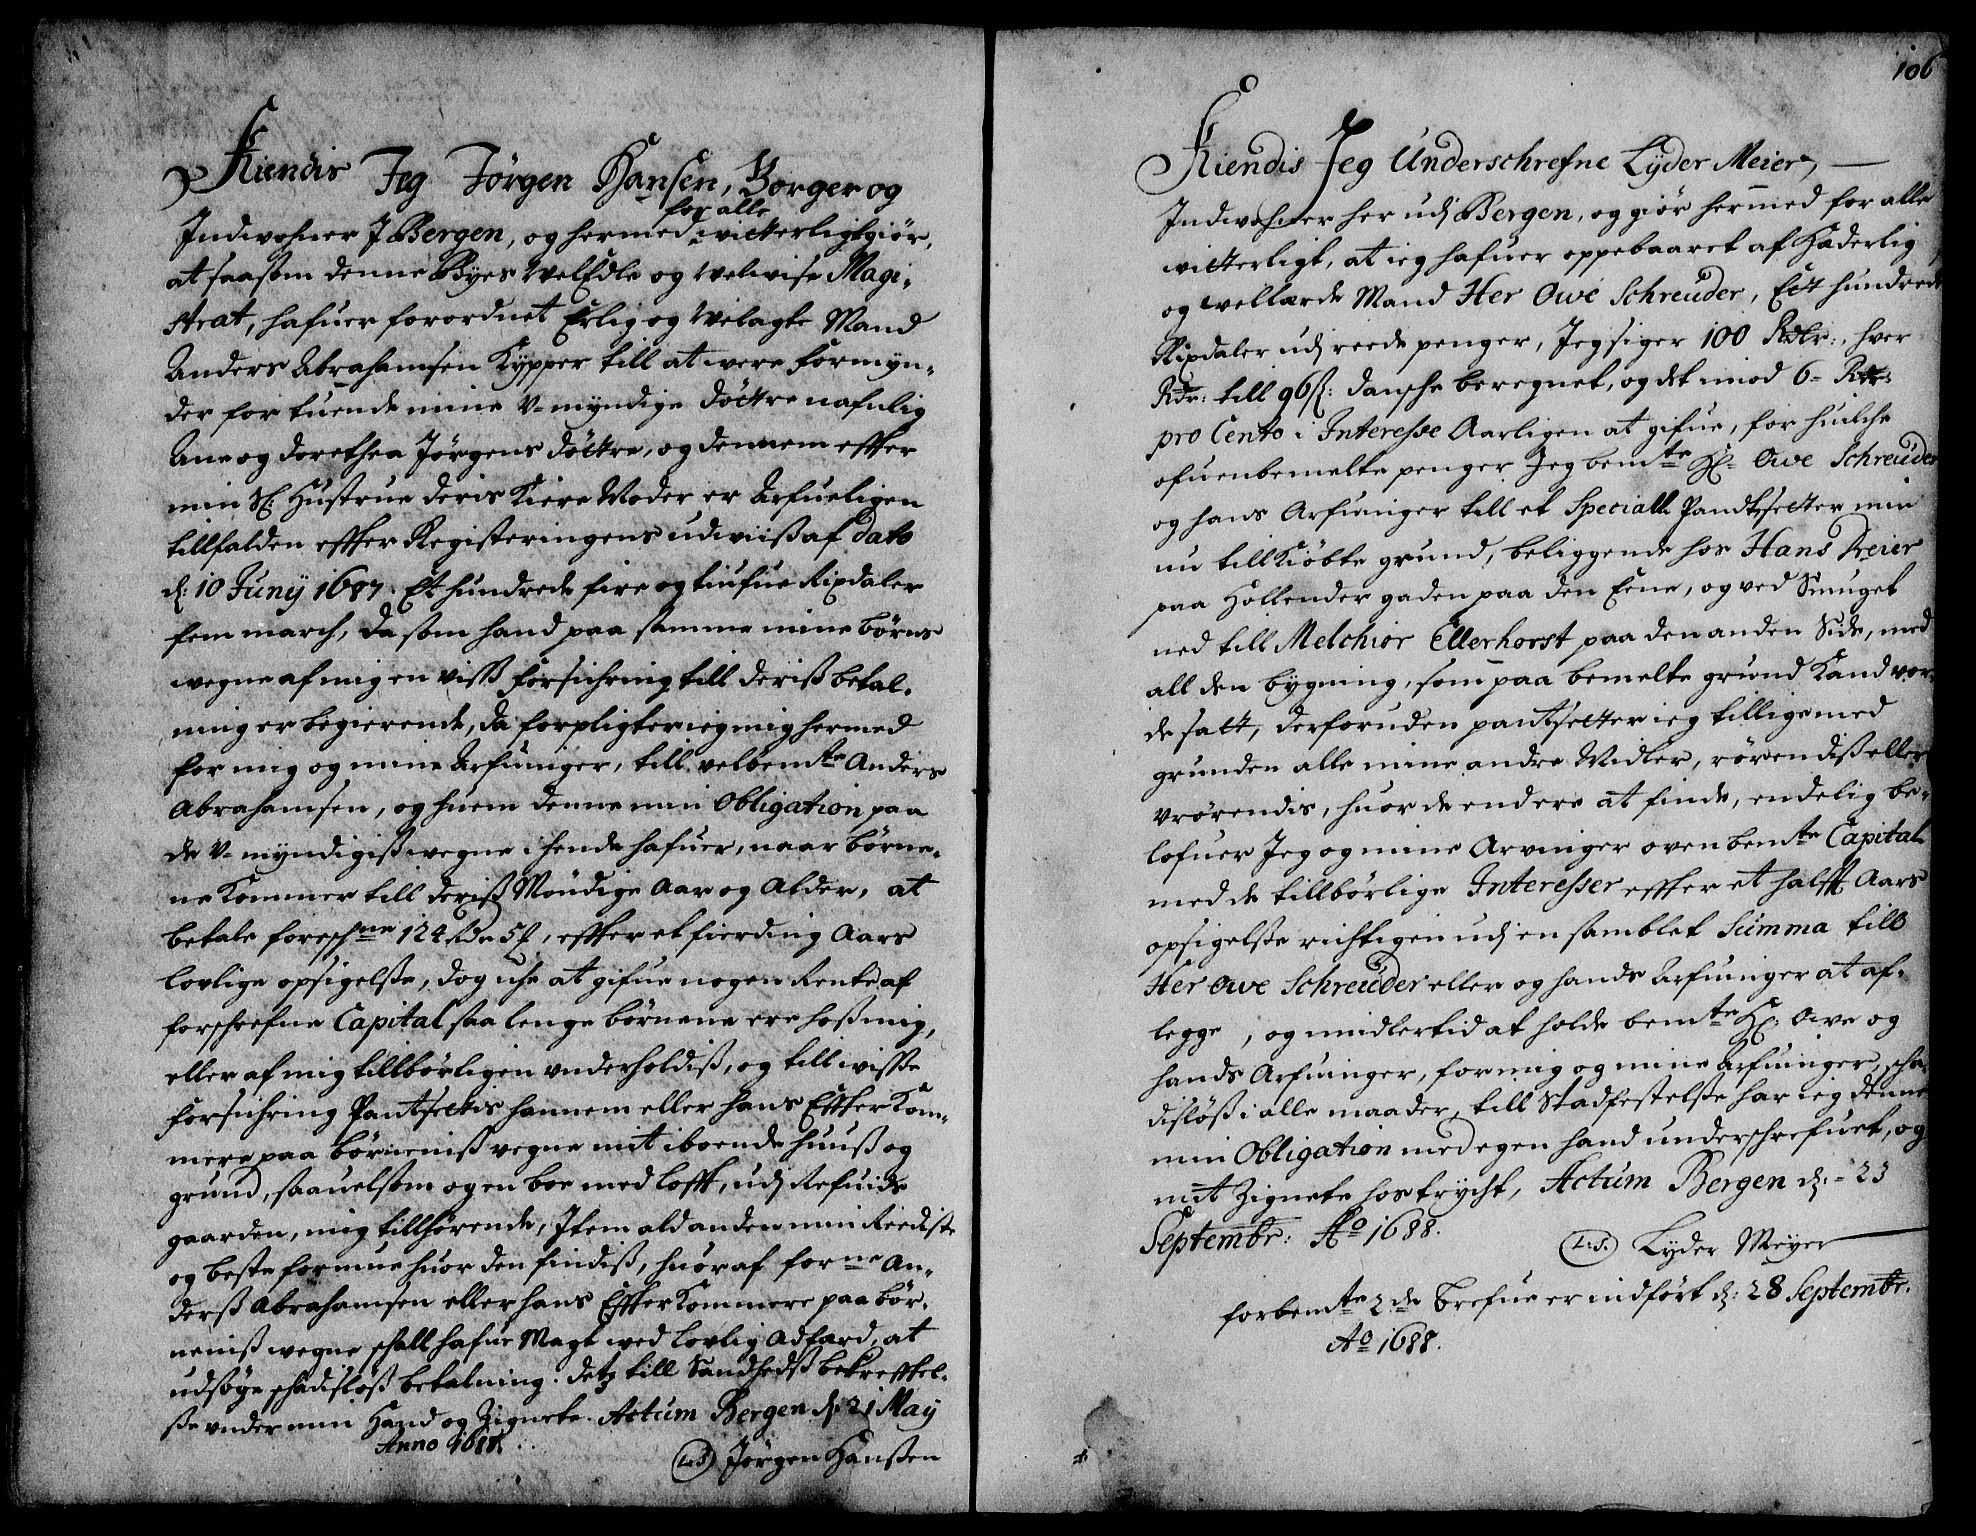 Kiendis Jeg Jørgen Hansen, Borger og
Indwohner J Bergen, og hermed for alle witterligtgiør,
at saasom denne Byes WelEdle og Welwise Magi-
strat, hafuer forordnet Erlig og Welagte Mand
Anders Abrahamsen Kypper till at were formyn-
der for tuende mine V-myndige døttre nafnlig
Ane og dorethea Jørgens døttre, og dennem effter
min Sl: Hustrue deris Kiere Moder er Arfueligen
tillfalden effter Registeringens udwiiß af dato
d: 10 Junij 1687. Et hundrede fire og tiufue Rixdaler
fem march, da som hand paa samme mine børns
wegne af mig en viss forsichring till deriß betal-
ning er begierende, da forpligter ieg mig hermed
for mig og mine Arfuinger, till velbemte Anders
Abrahamsen, og huem denne min Obligation paa
de V-myndigiß wegne i hende hafuer, naar børne-
ne Kommer till deriß Myndige Aar og Alder, at
betale foreschne 124 Rdr 5 ß, effter et fierding Aars
lovlige opsigelse, dog iche at gifue nogen Rente af
forschrefne Capital saa lenge børnene ere hoß mig,
eller af mig tillbørligen vnderholdiß, og till wisse
forsichring Pantsettis hannem eller hans EffterKom-
mere paa børneniß vegne mit iboende huuß og
grund, saauelsom og en boe med lofft, udj Refuide
gaarden, mig tillhørende, Item ald anden min Reediste
og beste formue huor den findiß, huoraf forne An-
derß Abrahamsen eller hans EffterKommere paa bør-
neniß wegne schall hafue Magt wed Lovlig Adfard, at
udsøge schadisløß betalning. detz till Sandhedß bekrefftel-
se vnder min Hand og Zignete. Actum Bergen d: 21 May
Anno 1688.
(L.S) Jørgen Hansen
106
Kiendis Jeg Underschrefne Lyder Meier,
Indwohner her udj Bergen, og giør hermed for alle
witterligt, at ieg hafuer oppebaaret af Hæderlig
og wellærde Mand Her Owe Schreuder, Ett hundrede
Rixdaler udj reede penger, Jeg siger 100 Rdlr:, hver
Rdr: till 96 ß: dansche beregnet, og det imod 6 = Rdr:
pro Cento i Interesse Aarligen at gifue, for huilche
ofuenbemelte penger Jeg bemte Hr: Owe Schreuder
og hans Arfuinger till et Speciall Pandt setter min
nu tillKiøbte grund, beliggende hos Hans Dreier
paa Hollender gaden paa den Eene, og ved Smuget
ned till Melchior Ellerhorst paa den anden Side, med
all den bygning, som paa bemelte grund Kand vor-
de satt, derforuden pantsetter ieg tilligemed
grunden alle mine andre Midler, rørendiß eller
Vrørendis, huor de endere at finde, endelig be-
lofuer Jeg og mine Arvinger ovenbemte Capital
med de tillbørlige Interesser effter et halfft Aars
opsigelse richtigen udj en samblet Summa till
Her Owe Schreuder eller og hands Arfuinger at af-
legge, og midlertid at holde bemte Hr: Owe og
hands Arfuinger, for mig og mine Arfuinger, scha-
disløß i alle maader, till Stadfestelse har ieg denne
min Obligation med egen hand underschrefuet, og
mit Zignete hostrycht, Actum Bergen d: 23
Septembr: Ao 1688.
(L.S.) Lyder Meyer
forbemte 2de brefue er indført d: 28 Septembr.
Ao 1688.